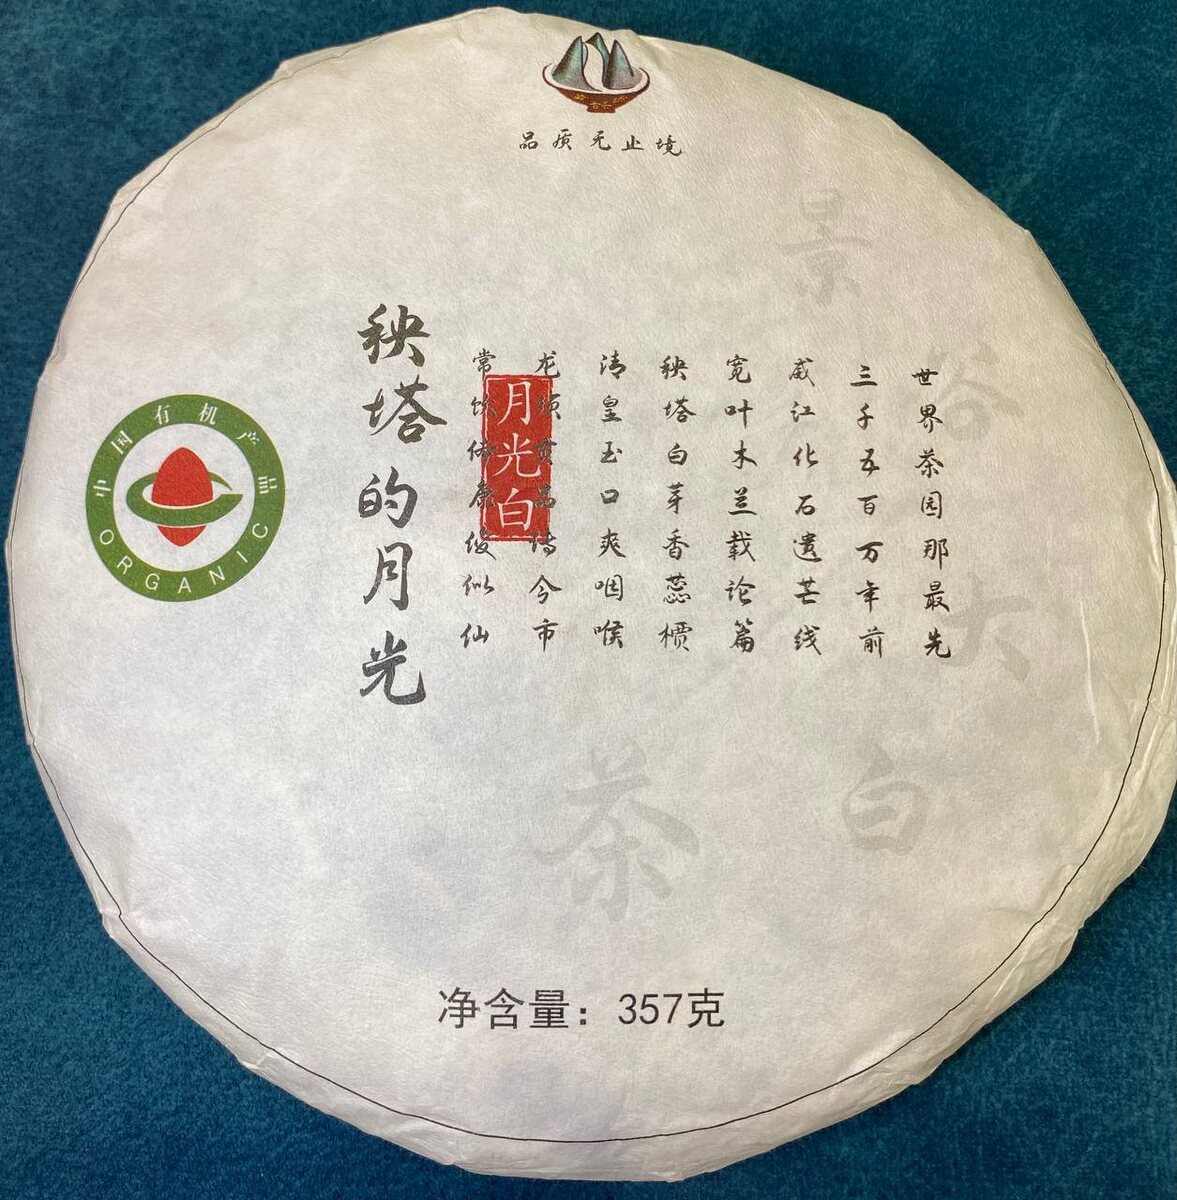 品质无止境
世界茶园那最先
三千五百万年前
威江化石遗芒线
宽叶木兰载论篇
秧塔白芽香蕊槚
清皇玉口爽咽喉
龙须贡品传今市
常饮健康缓似仙
月光白
秧塔的月光
中国有机产品
ORGANIC
景
大
白
茶
净含量：357克